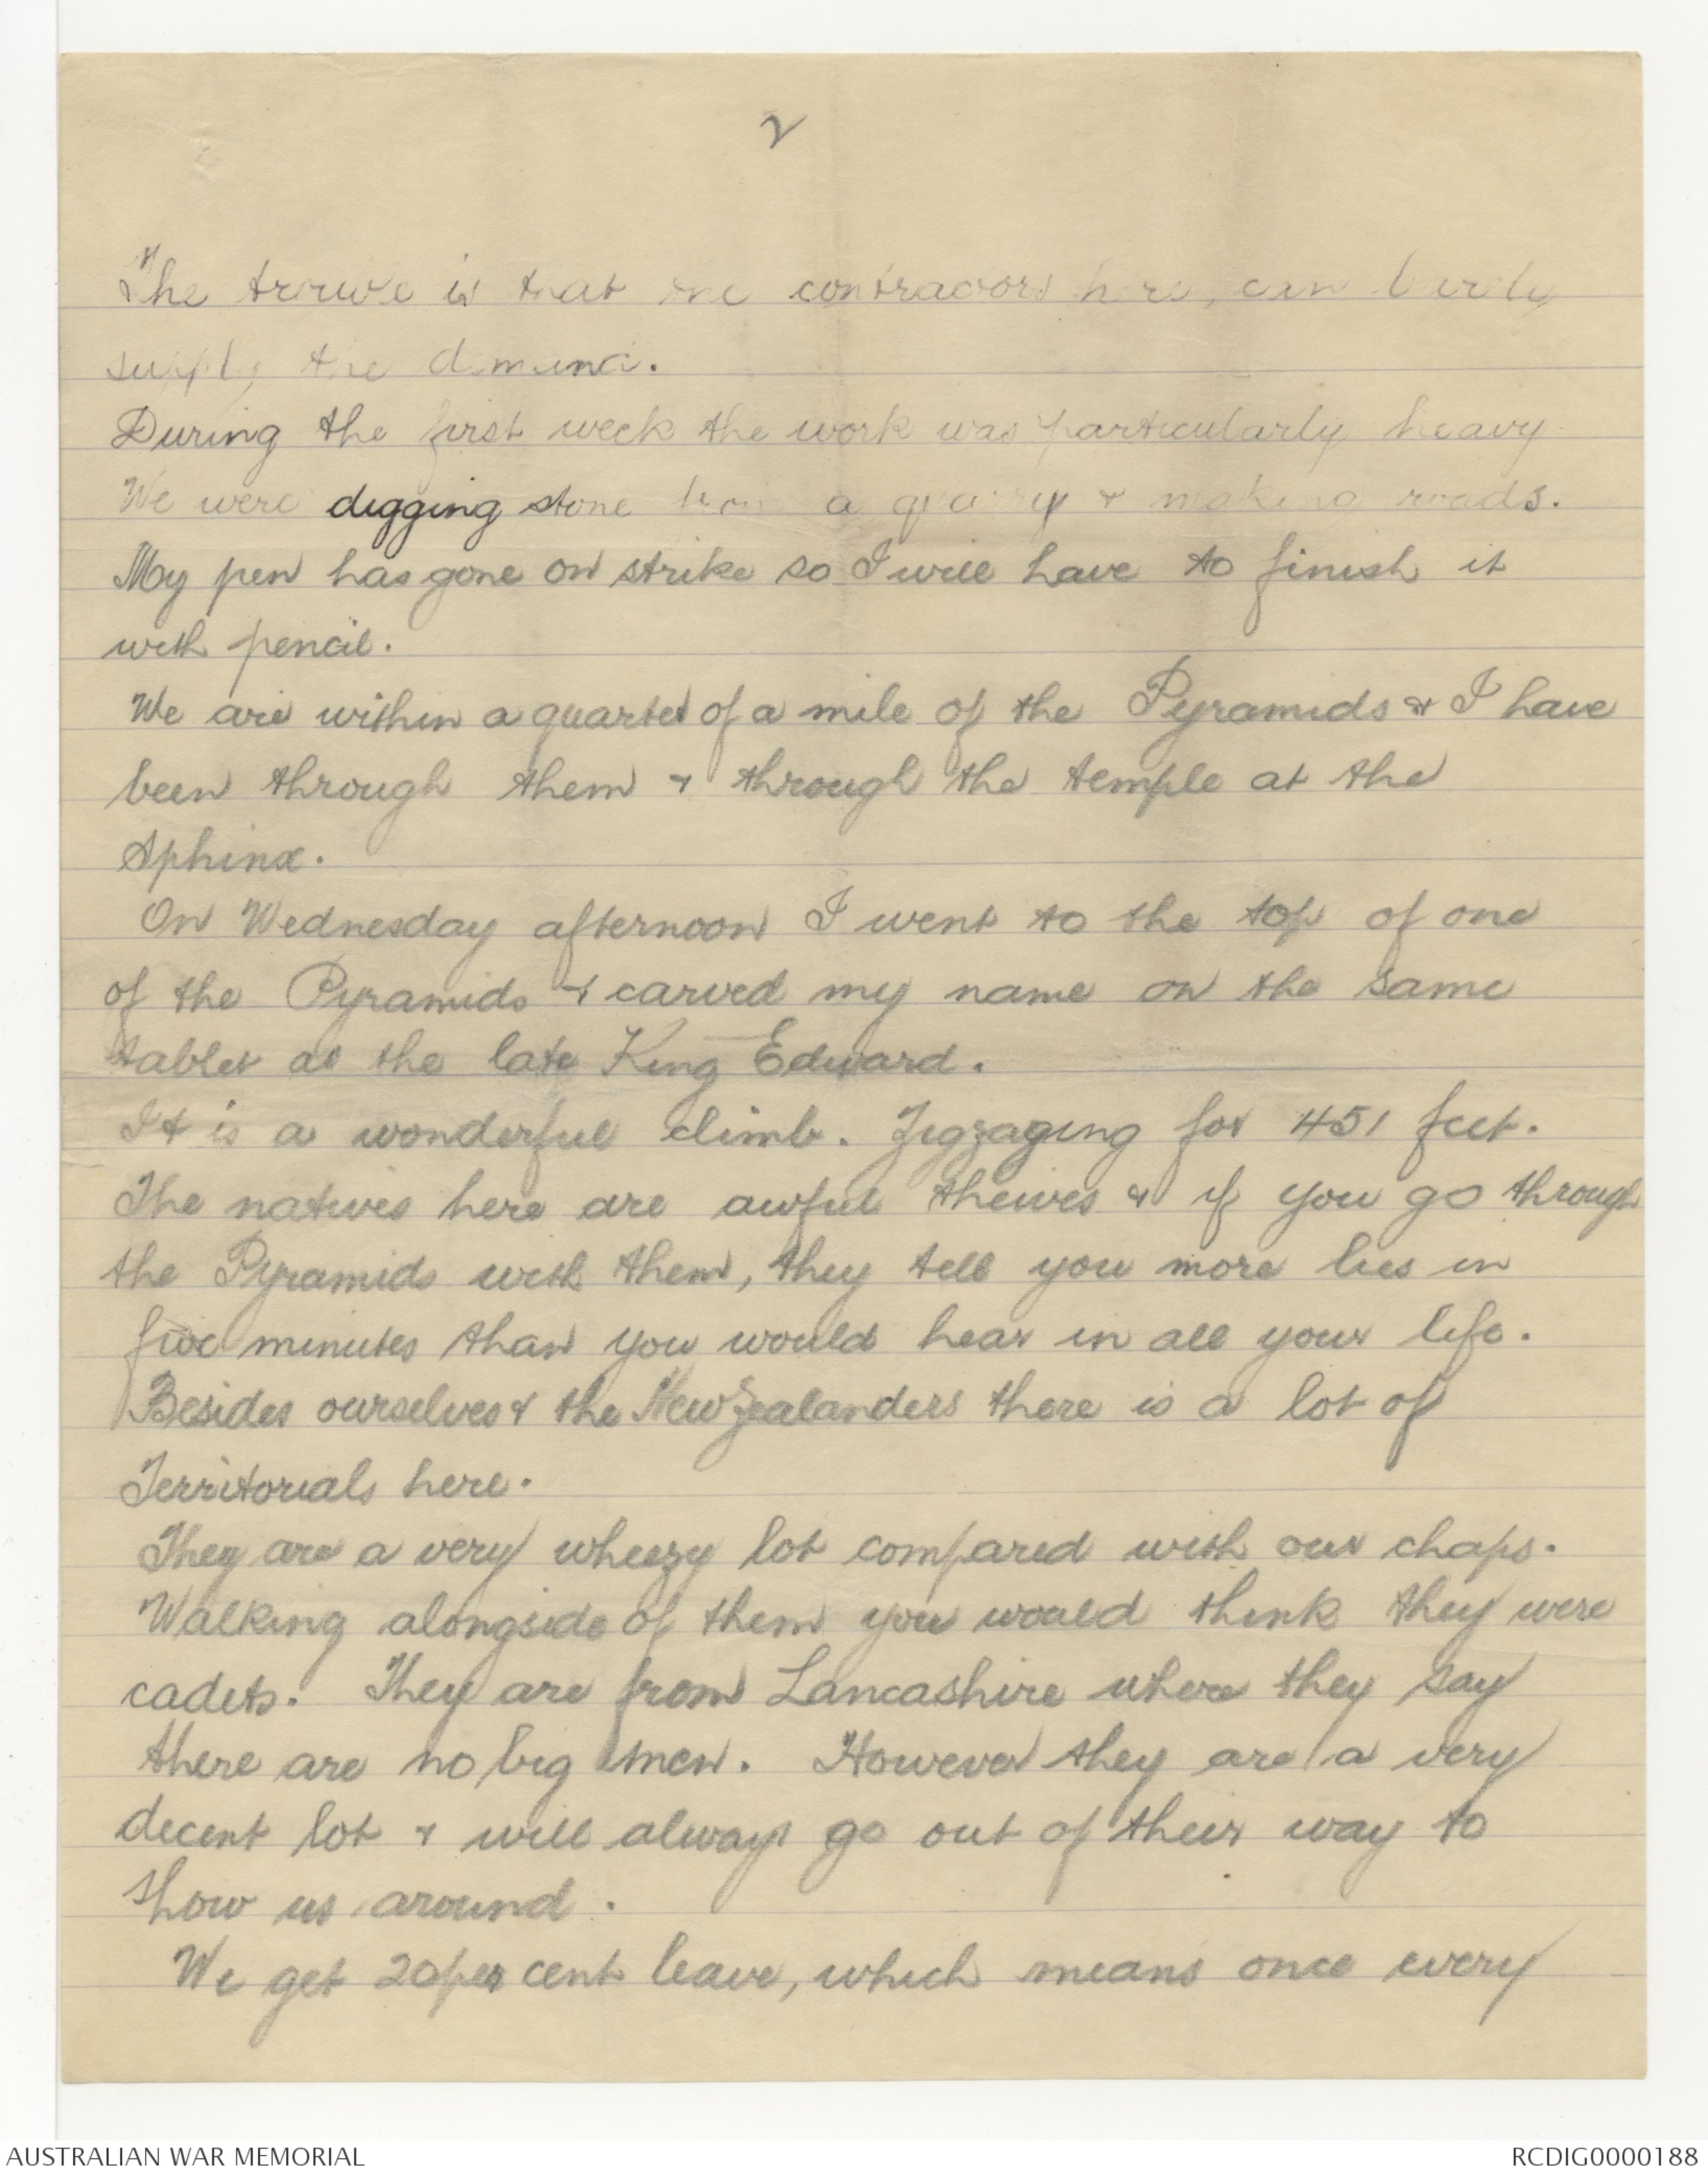 2
The trouble is that the contractors here, can barely
supply the demand.
During the first week the work was particularly heavy
We were digging stone from a quarry & making roads.
My pen has gone on strike so I will have to finish it
with pencil.
We are within a quarter of a mile of the Pyramids & I have
been through them & through the temple at the
Sphinx.
On Wednesday afternoon I went to the top of one
of the Pyramids & carved my name on the same
tablet as the late King Edward.
It is a wonderful climb. Zigzaging for 451 feet.
The natives here are awful theives & if you go through
the Pyramids with them, they tell you more lies in
five minutes than you would hear in all your life.
Besides ourselves & the New Zealanders there is a lot of
Territorials here.
They are a very wheezy lot compared with our chaps.
Walking alongside of them you would think they were
cadets. They are from Lancashire where they say
there are no big men. However they are a very
decent lot & will always go out of their way to
show us around.
We get 20 per cent leave, which means once every
AUSTRALIAN WAR MEMORIAL
RCDIG0000188